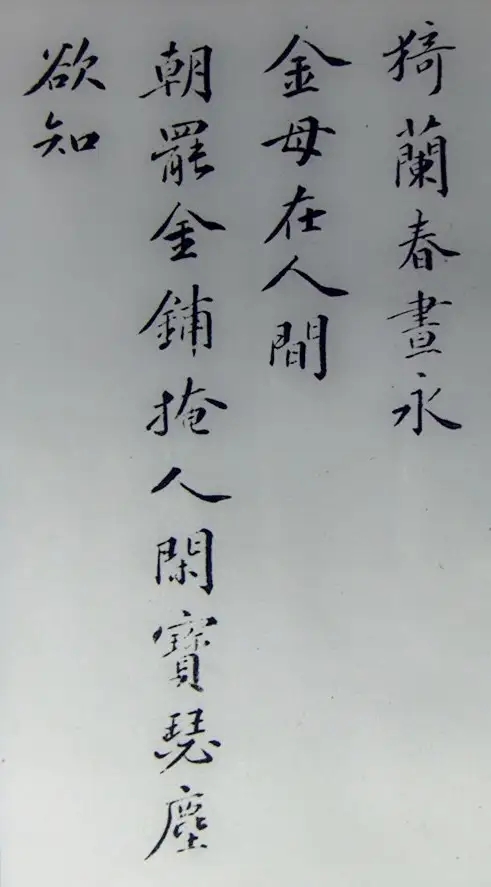 猗蘭春晝永
金母在人間
朝罷金鋪掩人閑寶瑟塵
欲知